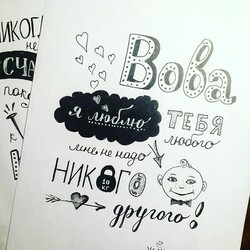 НИКОГ
не
СЧА
пока
к
Вова
я люблю
ТЕБЯ
любого
мне не надо
НИКОГО
10 кг
другого!